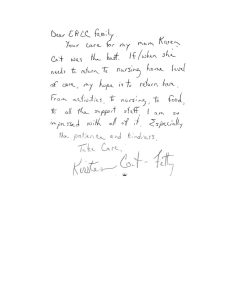 Dear CRCC family
Your care for my mom Karen
Cort was the best. If/when she
needs to return to nursing home level
of care, my hope is to return here.
From activities, to nursing, to food,
to all the support staff. I am so
impressed with all of it. Especially
the patience and kindness.
Take Care,
Cort-